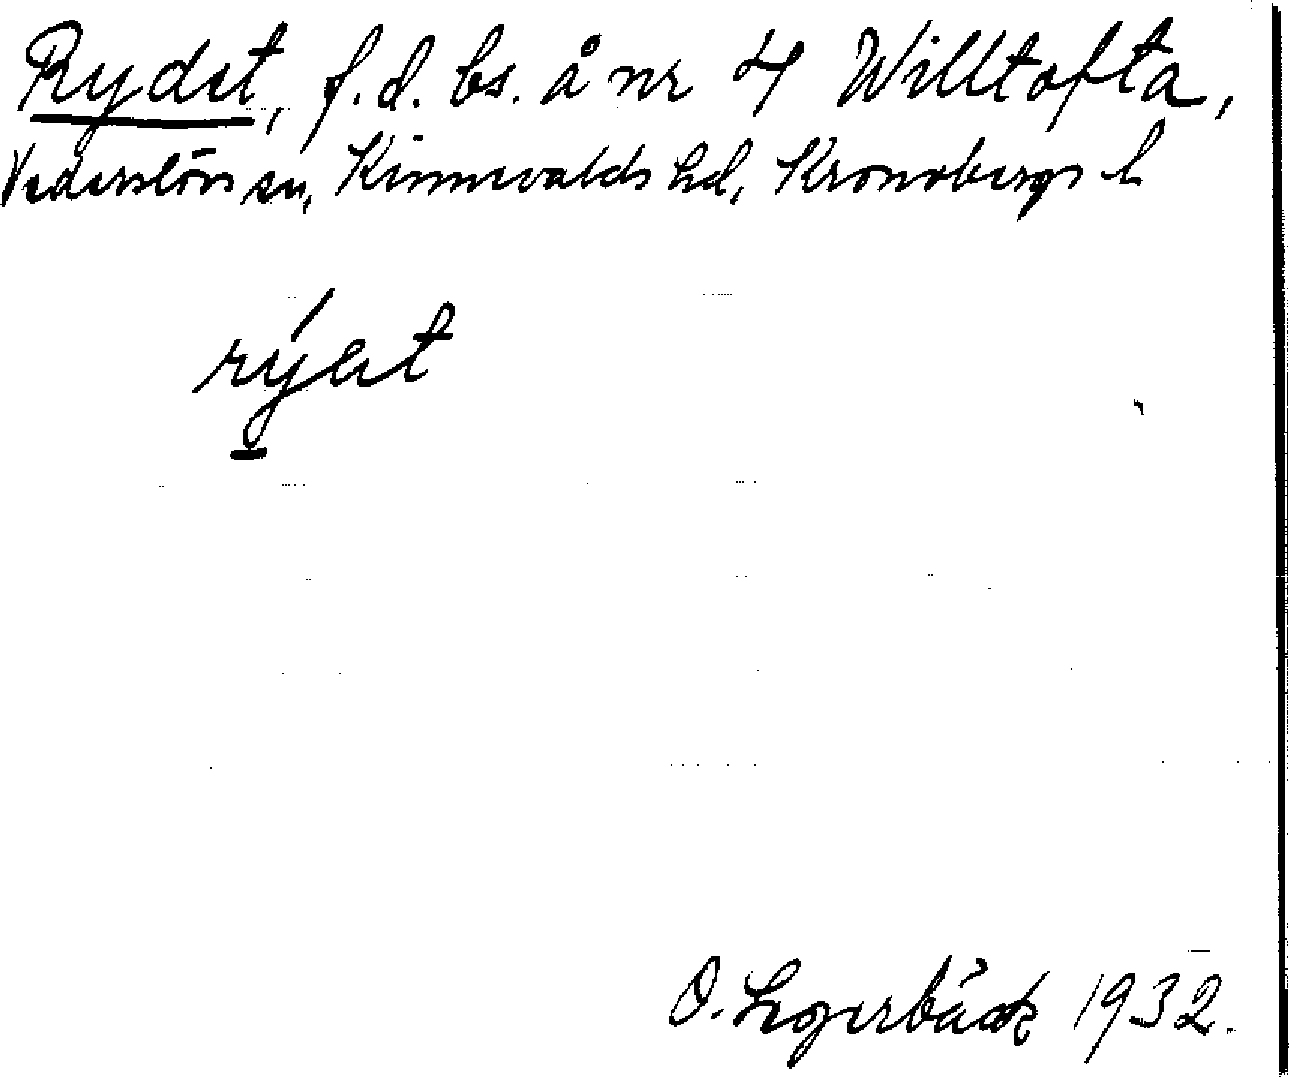 Rydet, f.d. bs. å nr 4 Willtofta,
Vederslövs sn, Kinnevalds hd, Kronobergs l
rýet
O. Legerbäck 1932.